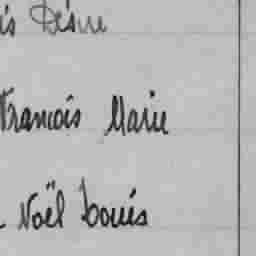 is Désiré
François Marie
Noël Louis